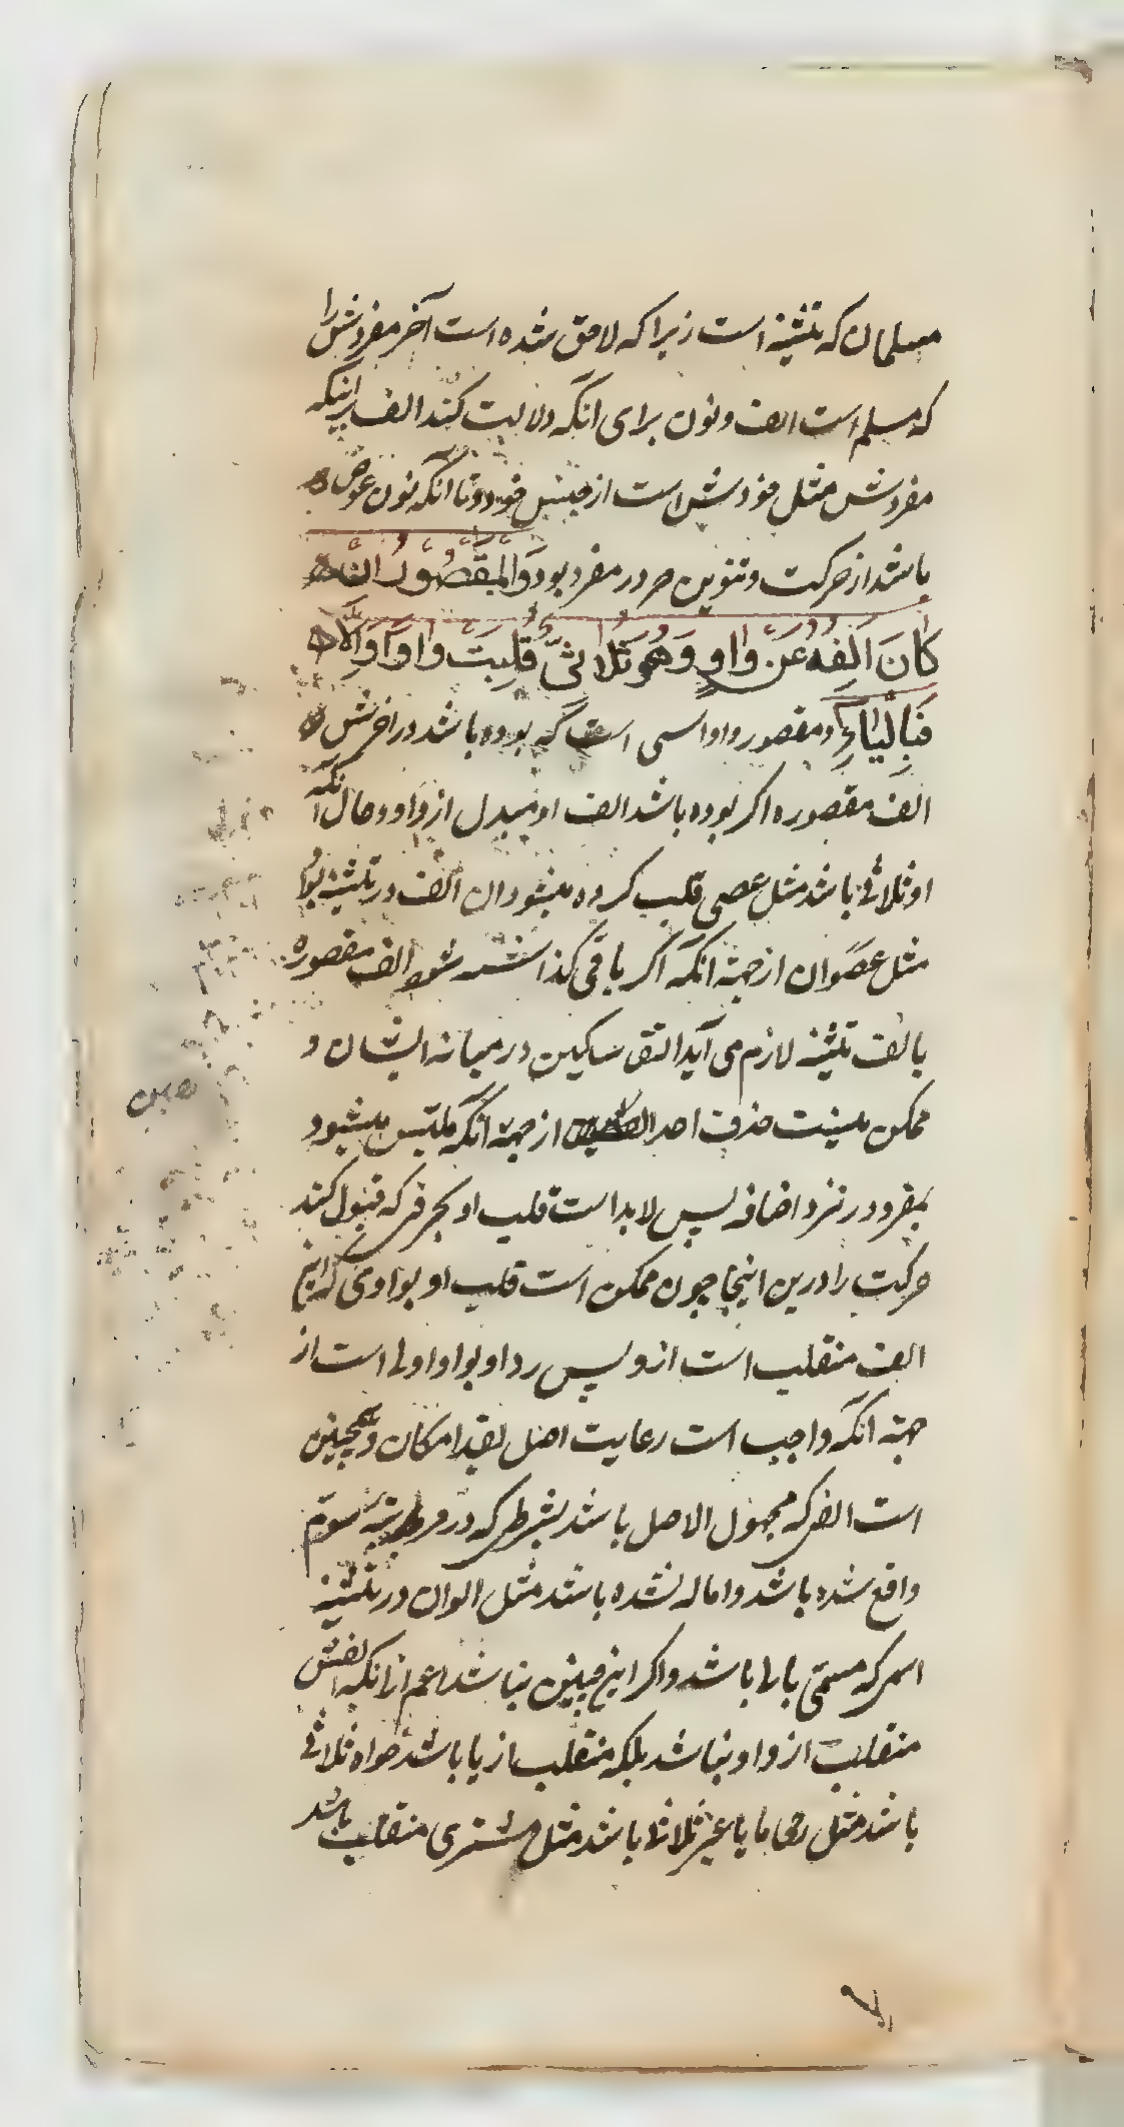 مسلمان که تثنیه است زیرا که لاحق شده است آخر مفردش را
که مسلم است الف و نون برای انکه دلالیت کند الف برینکه
مفردش مثل خودش است از جنس خود و تا انکه نون عوض
باشد از حرکت و تنوین که در مفرد بود وَالْمَقْصُورُ اِنْ
كَانَ اَلِفُهُ عَنْ وَاوٍ وَهُوَ ثُلَاثِىٌّ قُلِبَتْ وَاوًا وَاِلَّا
فَبِالْيَاءِ و مقصور و او اسمی است که بوده باشد در اخرش
الف مقصوره اکر بوده باشد الف او مبدل از واو و حال آنکه
او ثلاثی باشد مثل عصی قلب کرده میشود ان الف در تثنیه بواو
مثل عصوان از جهة انکه اکر باقی کذاشته شود الف مقصوره
با الف تثنیه لازم می آید التقا ساکنین در میانه ایشان و
ممکن نیست حذف احد از جهة انکه ملتبس میشود
بمفرد در نزد اضافه پس لابد است قلب او بحرفی که قبول کند
حرکت را درین اینجا چون ممکن است قلب او بواوی که این
الف منقلب است از و پس رد او بواو اولی است از
جهة انکه واجب است رعایت اصل بقدر امکان و همچنین
است الفی که مجهول الاصل باشد بشرطی که در مرتبهٔ سوم
واقع شده باشد و اماله نشده باشد مثل الوان در تثنیه
اسمی که مسمی بالی باشد و اکر این چنین نباشد اعم از انکه الفش
منقلب از واو نباشد بلکه منقلب از یا باشد خواه ثلاثی
باشد مثل رحی یا غیر ثلاثی باشد مثل مشتری منقلب باشد